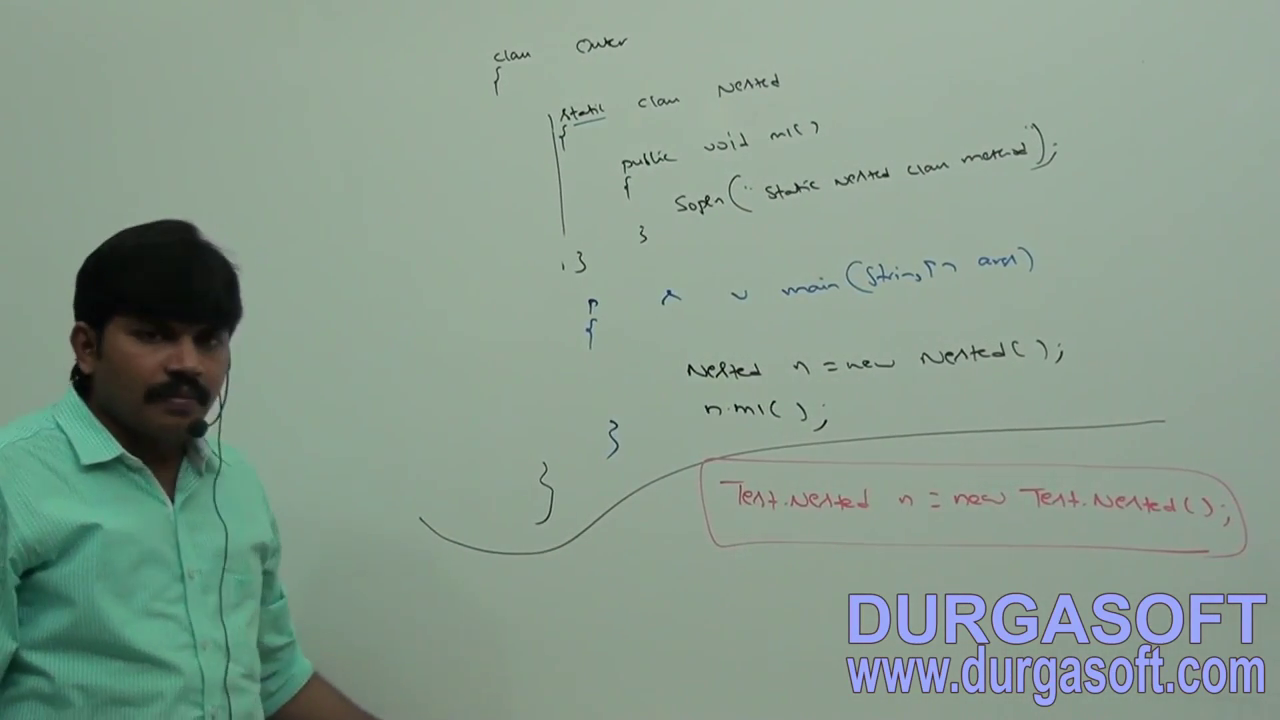 class Outer
{
static class Nested
{
public void m1()
{
Sopln("static nested class method");
}
}
p s v main(String[] args)
{
Nested n = new Nested();
n.m1();
}
}
Test.Nested n = new Test.Nested();
DURGASOFT
www.durgasoft.com